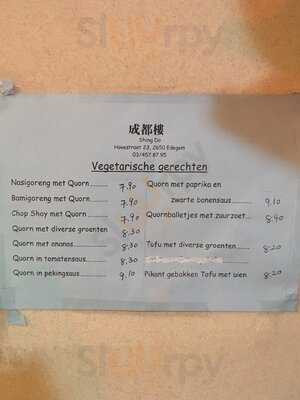 Sluurpy
成都樓
Shing Do
Hovestraat 23, 2650 Edegem
03/457 87 95
Vegetarische gerechten
Nasigoreng met Quorn.......... 7.90
Bamigoreng met Quorn.......... 7.90
Chop Shoy met Quorn.......... 7.90
Quorn met diverse groenten 8.30
Quorn met ananas.......... 8.30
Quorn in tomatensaus.......... 8.30
Quorn in pekingsaus.......... 9.10
Quorn met paprika en
zwarte bonensaus.......... 9.10
Quornballetjes met zuurzoet... 8.40
Tofu met diverse groenten.......... 8.20
Pikant gebakken Tofu met uien 8.20
Sluurpy